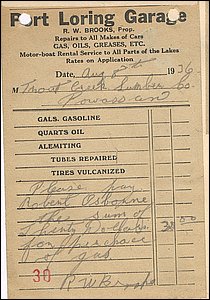 Port Loring Garage
R. W. BROOKS, Prop.
Repairs to All Makes of Cars
GAS, OILS, GREASES, ETC.
Motor-boat Rental Service to All Parts of the Lakes
Rates on Application
Date, Aug 8th 1926
M Trout Creek Lumber Co.
Powassan
GALS. GASOLINE
QUARTS OIL
ALEMITING
TUBES REPAIRED
TIRES VULCANIZED
Please pay
Robert Osborne
the sum of
Thirty Dollars 30 00
for purchase
of gas
30
R W Brooks